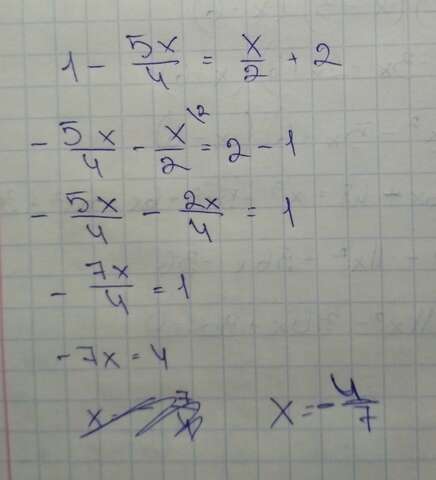 1 - 5x/4 = x/2 + 2
- 5x/4 - x\2/2 = 2 - 1
- 5x/4 - 2x/4 = 1
- 7x/4 = 1
-7x = 4
x = -4/7